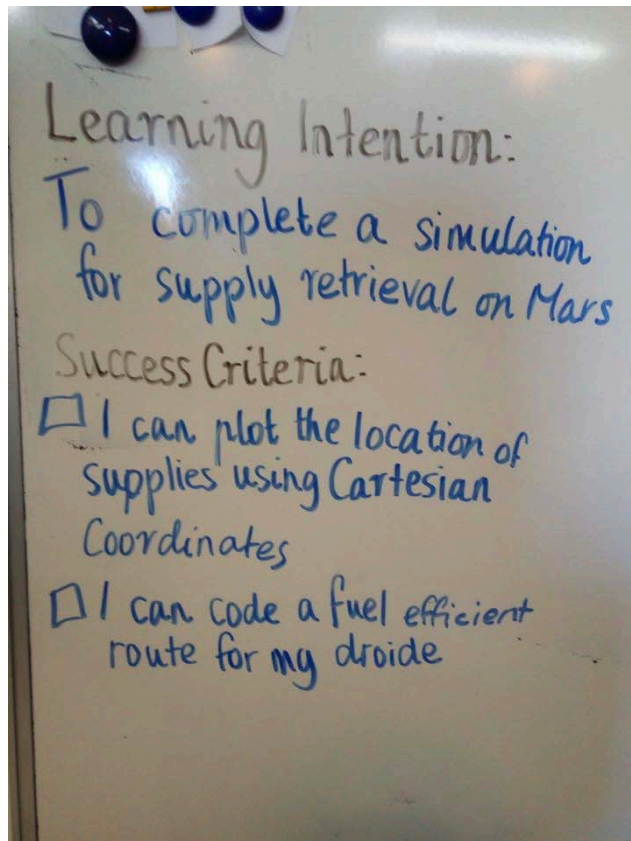 Learning Intention:
To complete a simulation
for supply retrieval on Mars
Success Criteria:
I can plot the location of
supplies using Cartesian
Coordinates
I can code a fuel efficient
route for my droide